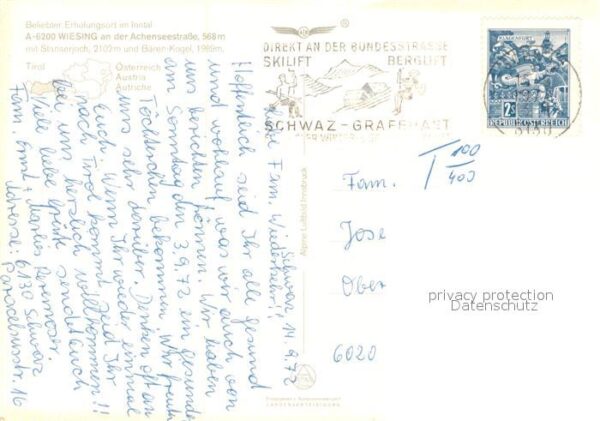 Beliebter Erholungsort im Inntal
A-6200 WIESING an der Achenseestraße, 568m
mit Stanserjoch, 2102m und Bären-Kogel, 1985m.
Tirol
Österreich
Austria
Autriche
DIREKT AN DER BUNDESSTRASSE
SKILIFT BERGLIFT
SCHWAZ-GRAFENAST
KLAGENFURT
2S
REPUBLIK ÖSTERREICH
6130
Schwaz, 14.9.72
Liebe Fam. Wiederkehr!!
Hoffentlich seid Ihr alle gesund
und wohlauf was wir auch von
uns berichten können. Wir haben
am Sonntag den 3.9.72 ein gesundes
Töchterchen bekommen. Wir freuen
uns sehr darüber. Denken oft an
Euch. Wenn Ihr wieder einmal
nach Tirol kommt seid Ihr
bei uns herzlich willkommen!!
Viele liebe Grüße sendet Euch
Fam. Ernst + Marlies
Adresse: 6130 Schwaz
Paracelsusstr. 16
Alpine Luftbild Innsbruck
T 100
400
Fam.
Jose
Ober
6020
privacy protection
Datenschutz